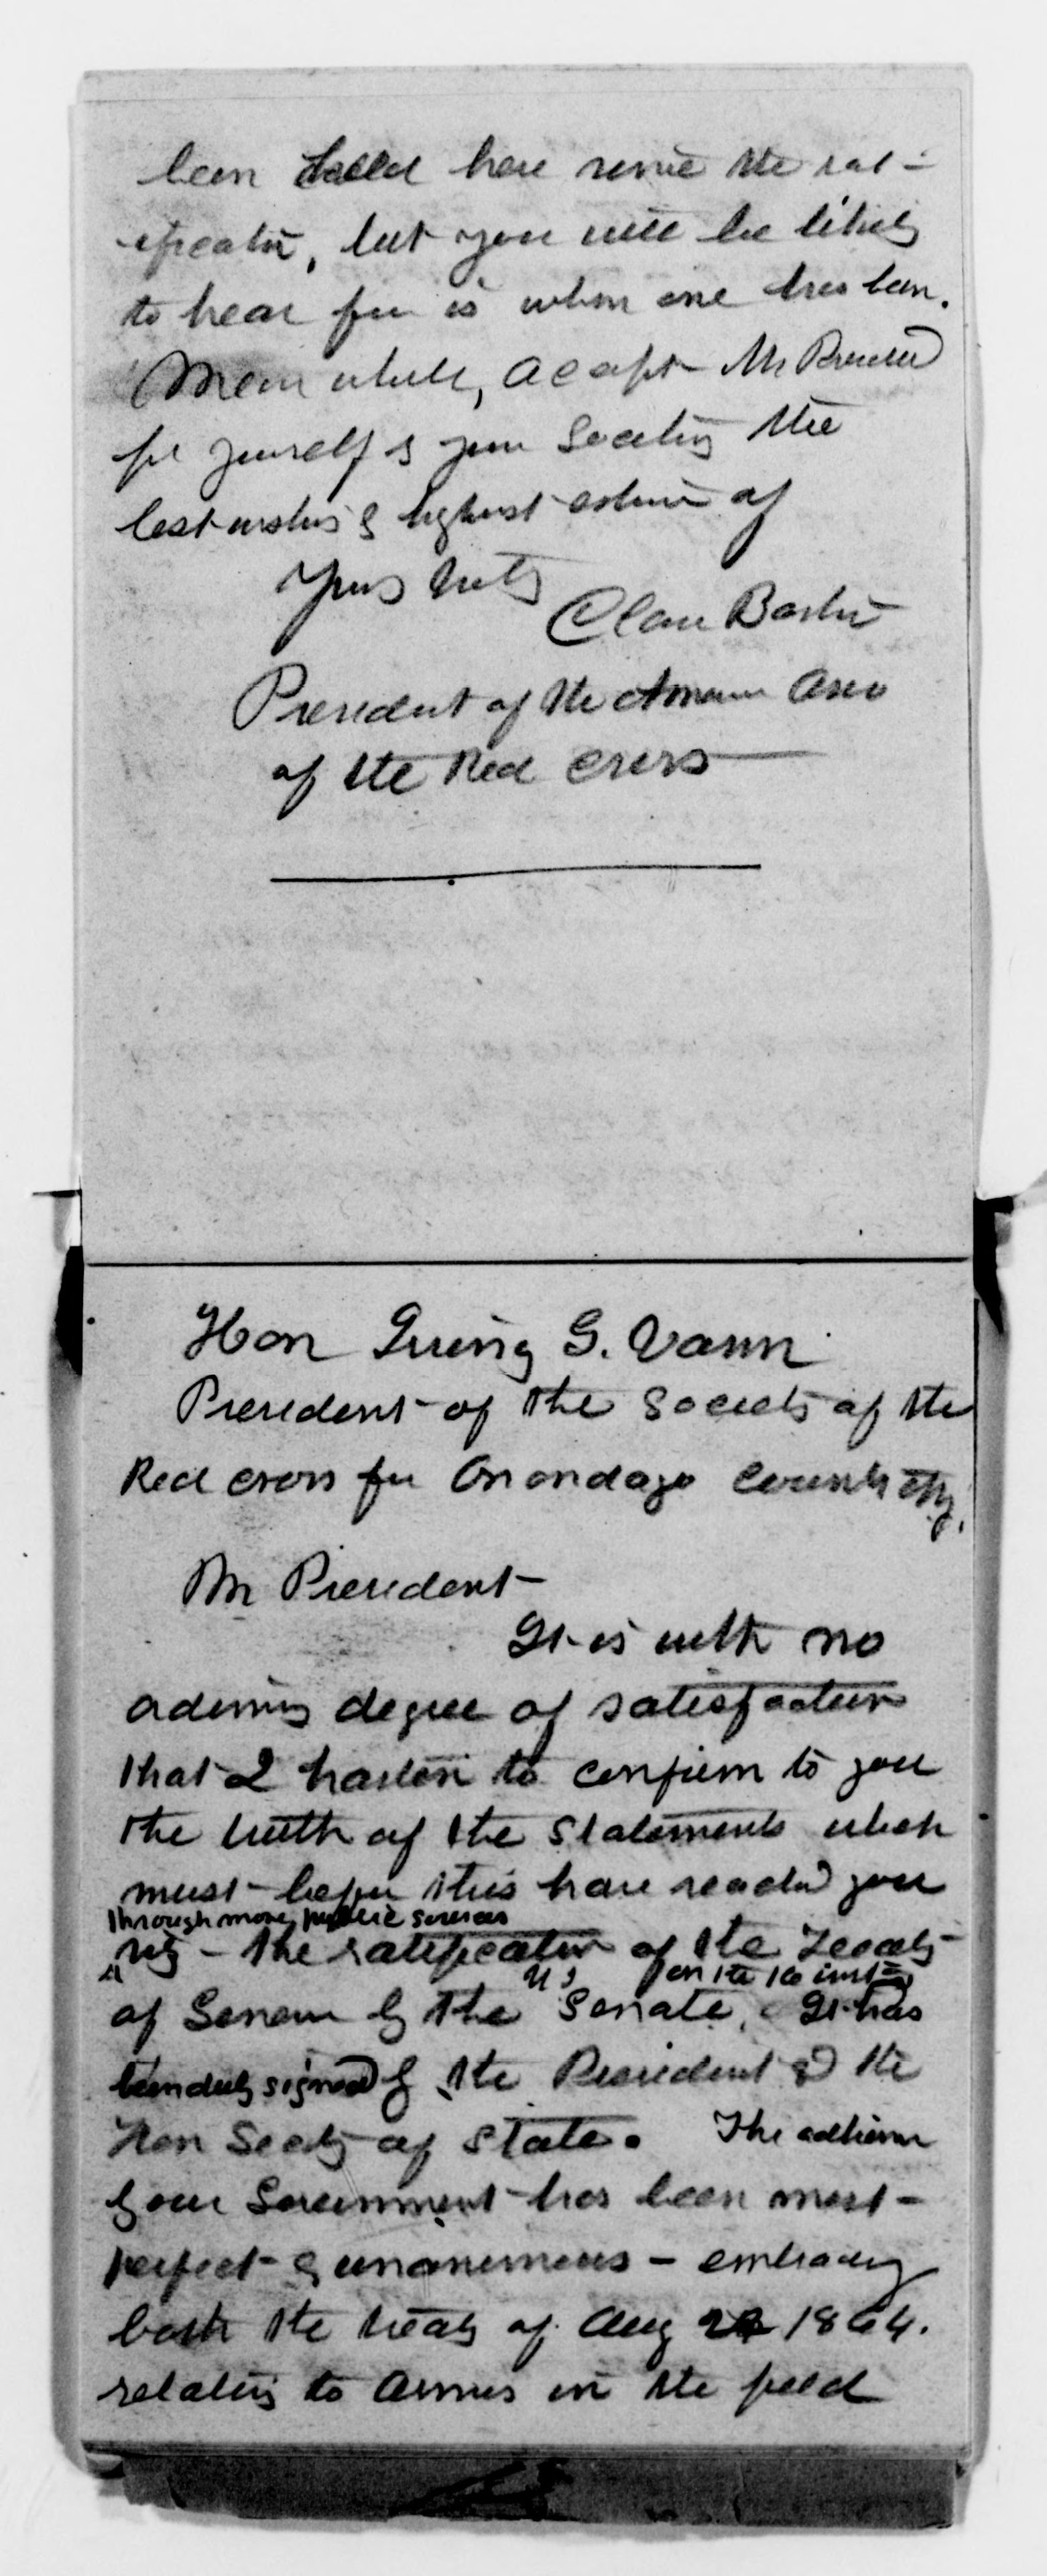 been called here since the rat-
ification, but you will be likely
to hear from us when one has been.
Meanwhile, accept Mr President
for yourself & your Society the
best wishes & highest esteem of
Yours truly
Clara Barton
President of the American Asso
of the Red Cross
Hon Irving G. Vann
President of the Society of the
Red Cross for Onondaga County
Mr President
It is with no
ordinary degree of satisfaction
that I hasten to confirm to you
the truth of the statements which
must before this have reached you
through more public sources
the ratification of the Treaty
of Geneva by the U.S. Senate, on the 16 inst. It has
been duly signed by the President & the
Hon Secty of State. The adhesion
of our Government has been most
perfect & unanimous - embracing
both the treaty of Aug 22 1864.
relating to armies in the field